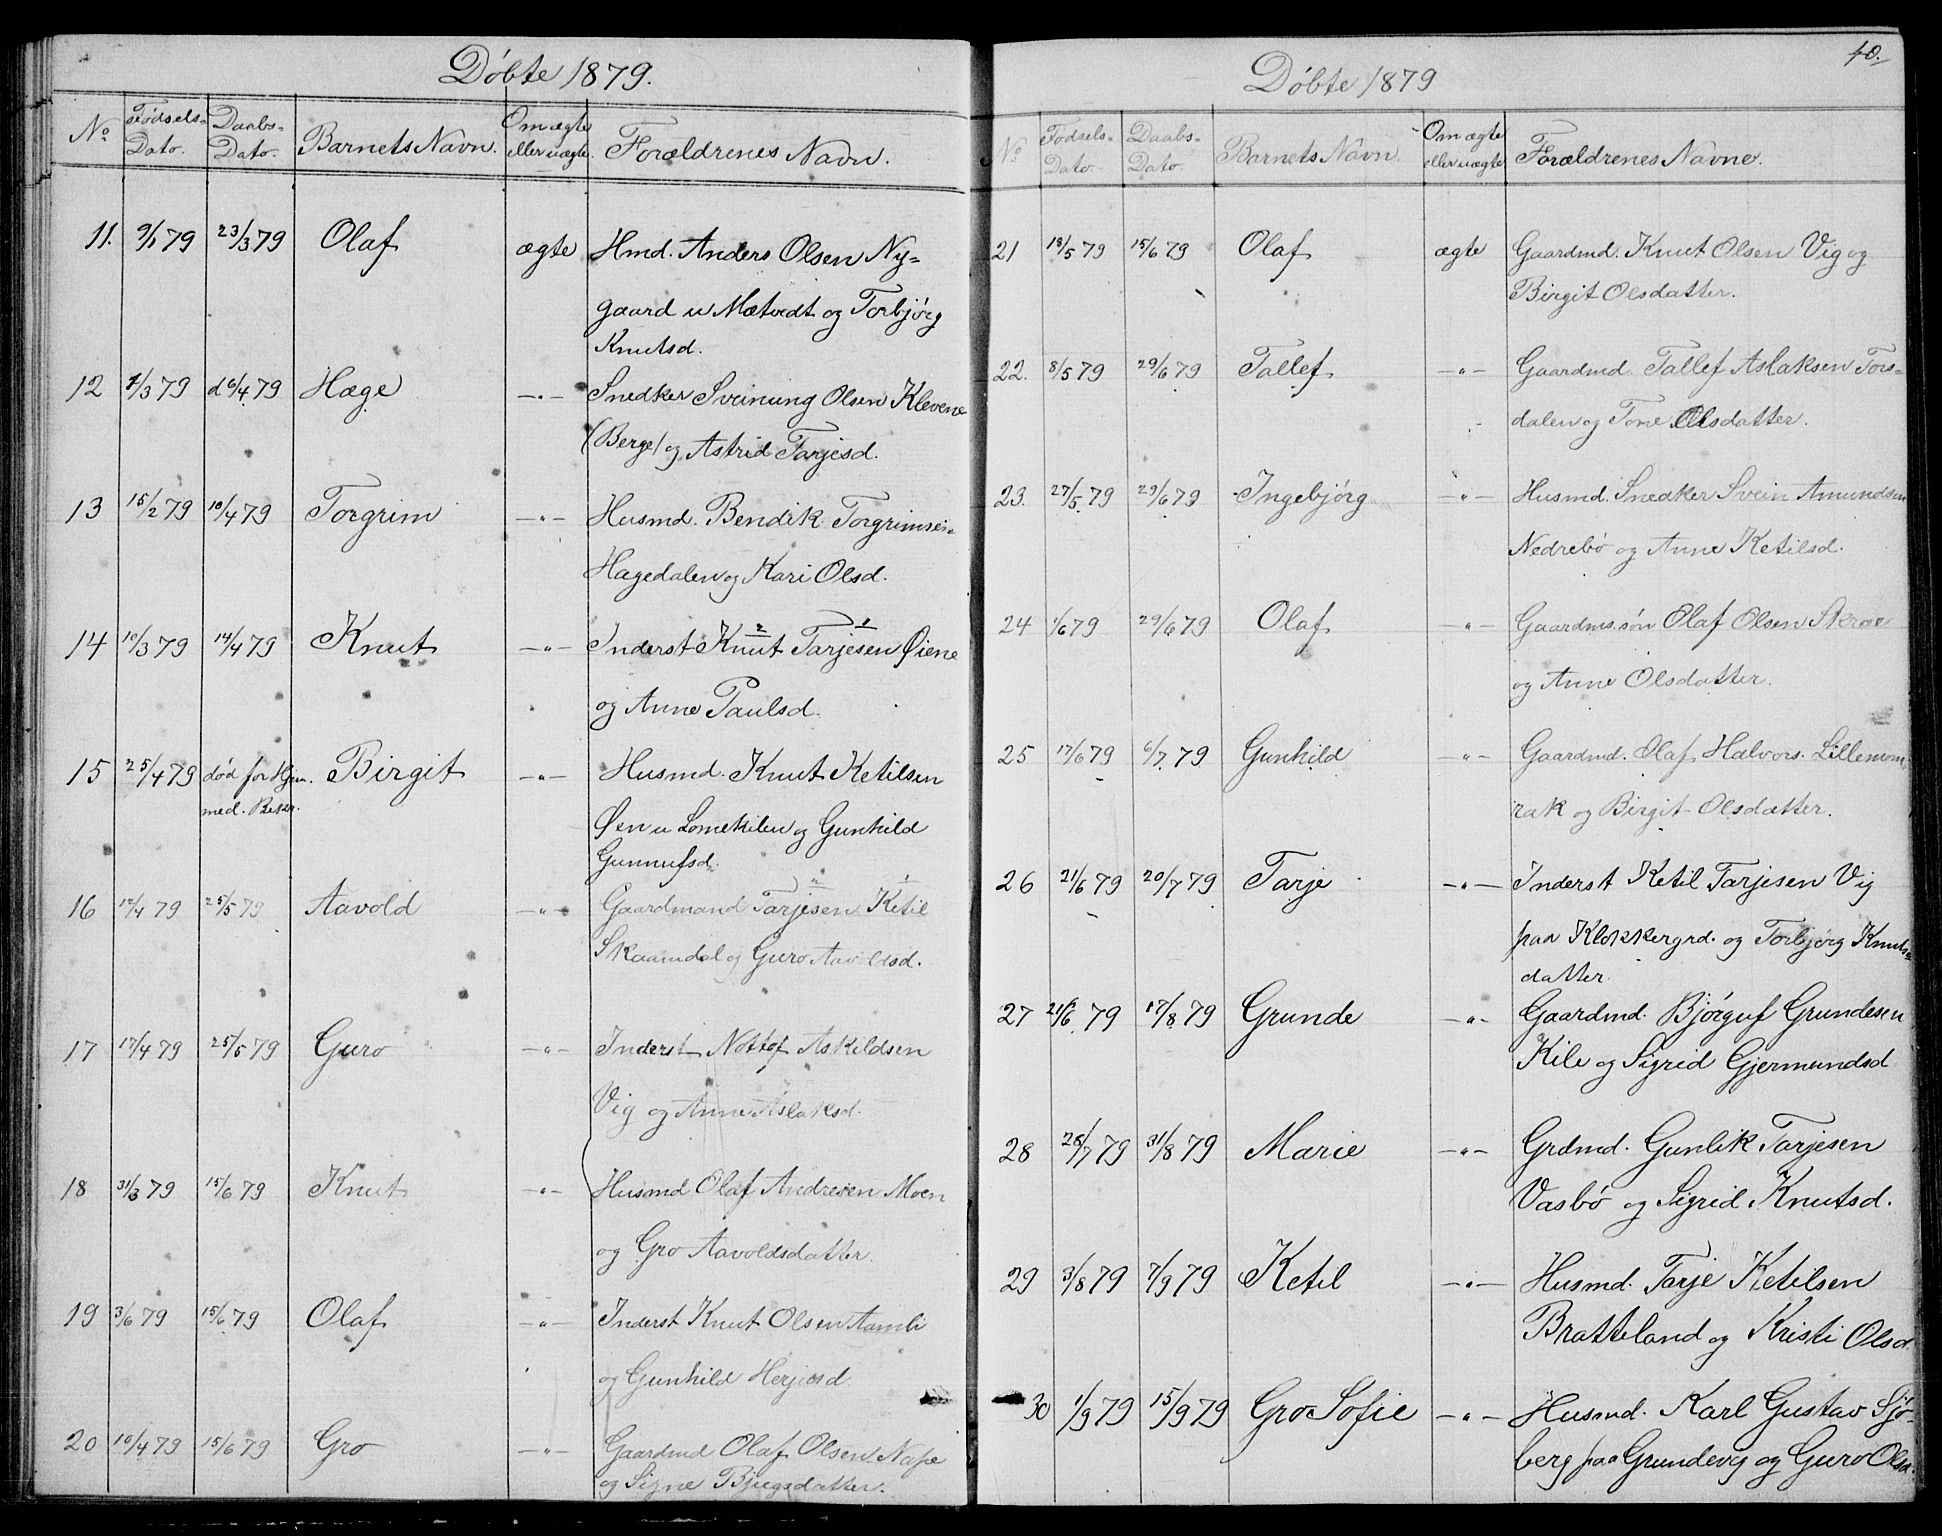 Døbte 1879.
No Fødsels= Dato. Daabs= Dato. Barnets Navn. Om ægte eller uægte. Forældrenes Navn.
11. 9/1 79 23/3 79 Olaf ægte Hmd. Anders Olsen Ny=
gaard u Mætvedt og Torbjørg
Knutsd.
12 1/3 79 d 6/4 79 Hæge —"— Snedker Sveinung Olsen Klevene
(Berge) og Astrid Tarjesd.
13 15/2 79 10/4 79 Torgrim —"— Husmd. Bendik Torgrimsen
Hagedalen og Kari Olsd.
14 10/3 79 14/4 79 Knut —"— Inderst Knut Tarjesen Øiene
og Anne Paulsd.
15 25/4 79 død for Hjm. Birgit —"— Husmd. Knut Ketilsen
med. Besør.
Øen u Lomekilen og Gunhild
Gunnufsd.
16 12/4 79 25/5 79 Aavold —"— Gaardmand Tarjesen Ketil
Skaamdal og Guro Aavoldsd.
17 17/4 79 25/5 79 Guro —"— Inderst Nottof Askildsen
Vig og Anne Aslaksd.
18 31/3 79 15/6 79 Knut —"— Husmd Olaf Andresen Moen
og Gro Aavoldsdatter.
19 3/6 79 15/6 79 Olaf —"— Inderst Knut Olsen Aamli
og Gunhild Herjusd
20 10/4 79 15/6 79 Gro —"— Gaardmd Olaf Olsen Nape
og Signe Bjugsdatter.
40.
Døbte 1879
No Fødsels= Dato. Daabs= Dato. Barnets Navn. Om ægte eller uægte Forældrenes Navne.
21 18/5 79 15/6 79 Olaf ægte Gaardmd. Knut Olsen Vig og
Birgit Olsdatter.
22. 8/5 79 29/6 79 Tallef —"— Gaardmd. Tallef Aslaksen Tors=
dalen og Tone Olsdatter.
23. 27/5 79 29/6 79 Ingebjørg —"— Husmd. Snedker Svein Amundsen
Nedrebø og Anne Ketilsd.
24 1/6 79 29/6 79 Olaf —"— Gaardms.søn Olaf Olsen Skroe
og Anne Olsdatter.
25 17/6 79 6/7 79 Gunhild —"— Gaardmd. Olaf Halvors. Lillemom=
rak og Birgit Olsdatter.
26 21/6 79 20/7 79 Tarje —"— Inderst Ketil Tarjesen Vig
paa Klokkergrd. og Torbjørg Knuts=
datter.
27 21/6 79 17/8 79 Grunde —"— Gaardmd. Bjørguf Grundesen
Kile og Sigrid Gjermundsd
28 28/7 79 31/8 79 Marie —"— Grdmd. Gunlik Tarjesen
Vasbø og Sigrid Knutsd.
29 3/8 79 7/9 79 Ketil —"— Husmd. Tarje Ketilsen
Bratteland og Kristi Olsd.
30 1/9 79 15/9 79 Gro Sofie —"— Husmd. Karl Gustav Sjø=
berg paa Grundevig og Guro Olsd.